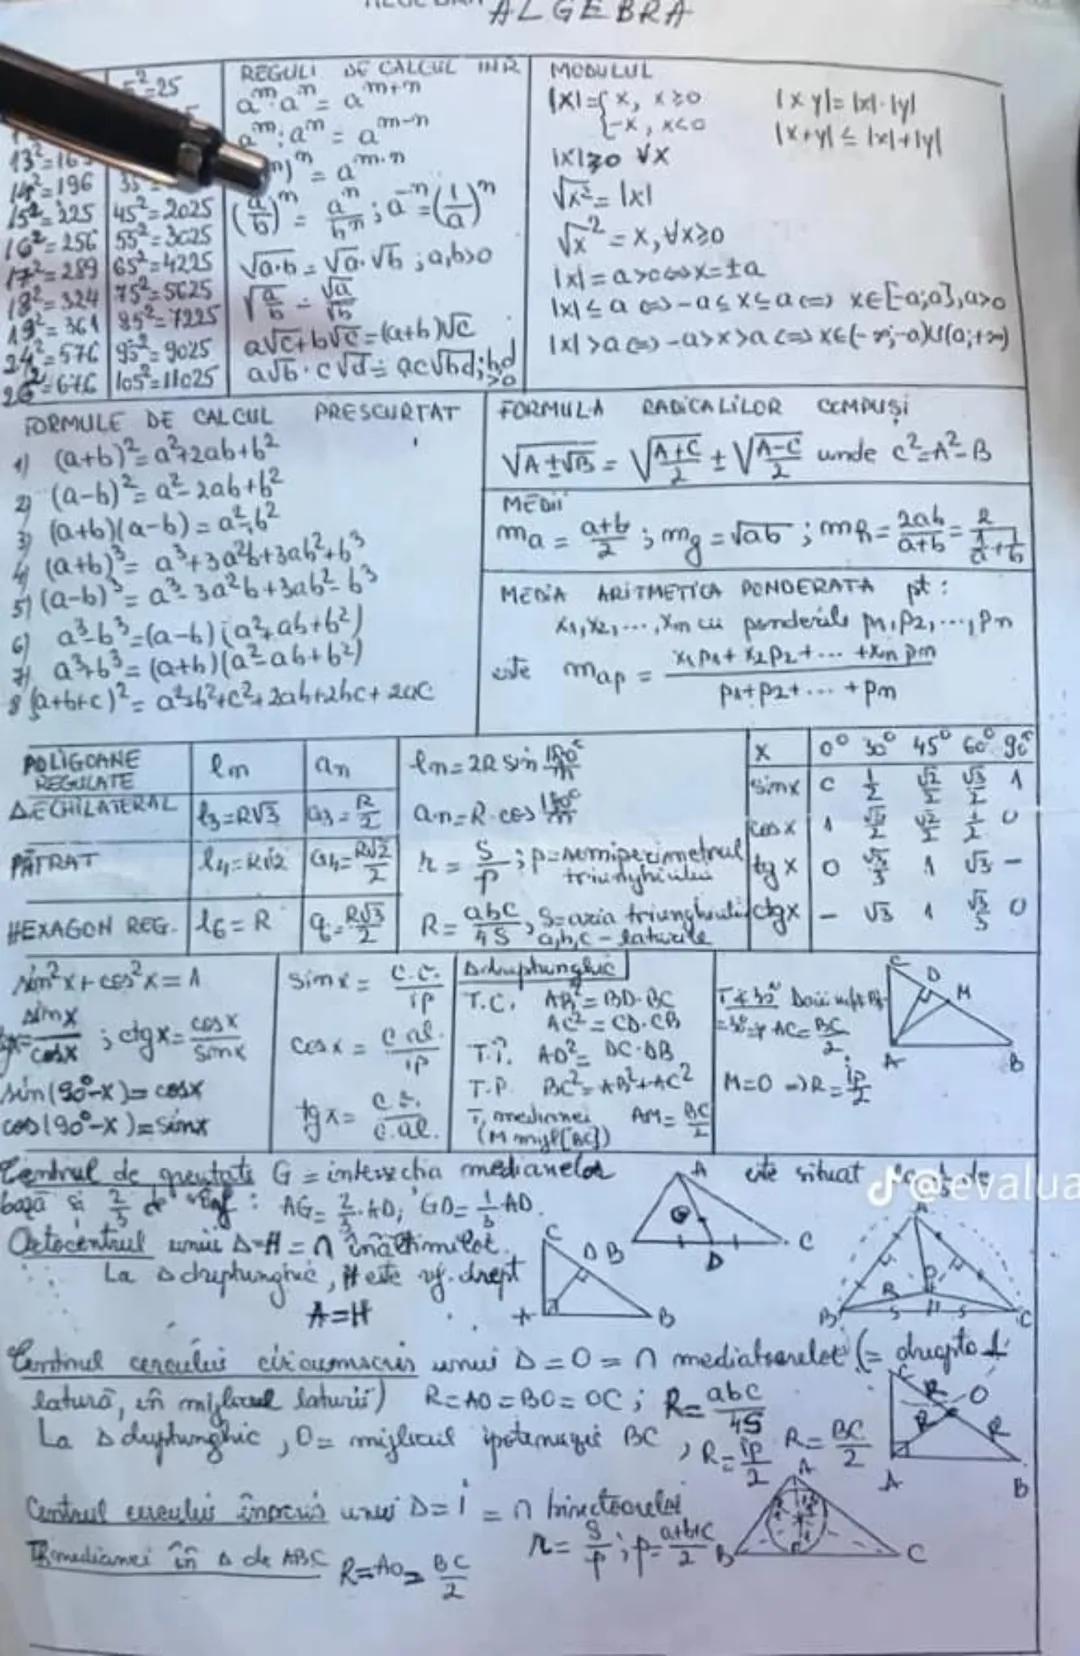 ALGEBRA
5²=25
14²=196
15²=225 45²=2025
16²=256 55²=3025
17²=289 65²=4225
18²=324 75²=5625
19²=361 85²=7225
24²=576 95²=9025
26²=676 105²=11025
REGULI DE CALCUL IN R
aᵐ·aⁿ = aᵐ⁺ⁿ
aᵐ:aⁿ = aᵐ⁻ⁿ
= aᵐ·ⁿ
(a/b)ⁿ = aⁿ/bⁿ ; a⁻ⁿ = (1/a)ⁿ
√a·b = √a·√b ; a,b>0
√a/b = √a/√b
a√c+b√c=(a+b)√c
a√b·c√d = ac√bd; b,d >0
MODULUL
|x|={x, x≥0
-x, x<0
|x y|=|x|·|y|
|x+y|≤|x|+|y|
|x|≥0 ∀x
√x² = |x|
√x² = x, ∀x≥0
|x|=a>0⇔x=±a
|x|≤a⇔-a≤x≤a⇔ x∈[-a;a], a>0
|x|>a⇔-a>x>a⇔x∈(-∞;-a)∪(a;+∞)
FORMULE DE CALCUL PRESCURTAT
1) (a+b)²=a²+2ab+b²
2) (a-b)²=a²-2ab+b²
3) (a+b)(a-b)=a²-b²
4) (a+b)³=a³+3a²b+3ab²+b³
5) (a-b)³=a³-3a²b+3ab²-b³
6) a³-b³=(a-b)(a²+ab+b²)
7) a³+b³=(a+b)(a²-ab+b²)
8 (a+b+c)²=a²+b²+c²+2ab+2bc+2ac
FORMULA RADICALILOR COMPUȘI
√A±√B = √A+C/2 ± √A-C/2 unde c²=A²-B
MEDII
ma = a+b/2 ; mg=√ab ; mh= 2ab/a+b = 2/1/a+1/b
MEDIA ARITMETICA PONDERATA pt:
x1,x2,...,xn cu ponderile p1,p2,...,pn
este map = x1p1+x2p2+...+xnpn/p1+p2+...+pn
POLIGOANE REGULATE ln an
Δ ECHILATERAL l3=R√3 a3=R/2
PĂTRAT l4=R√2 a4=R√2/2
HEXAGON REG. l6=R a6=R√3/2
ln=2R sin 180°/n
an=R·cos 180°/n
r = S/p ; p=semiperimetrul triunghiului
R= abc/4S S=aria triunghiului a,b,c-laturile
x 0° 30° 45° 60° 90°
sinx 0 1/2 √2/2 √3/2 1
cosx 1 √3/2 √2/2 1/2 0
tgx 0 √3/3 1 √3 -
ctgx - √3 1 √3/3 0
sin²x+cos²x=1
tgx= sinx/cosx ; ctgx= cosx/sinx
sin(90°-x)=cosx
cos(90°-x)=sinx
sinx = c.o./ip
cosx = c.al./ip
tgx = c.o./c.al.
Δ dreptunghic
T.C. AB²=BD·BC
AC²=CD·CB
T.Î. AD²=DC·DB
T.P. BC²=AB²+AC²
T. medianei AM=BC/2
(M mijl[BC])
AC=BC/2
M=O ⇒R=ip/2
C D M
A B
Centrul de greutate G = intersecția medianelor este situat
bază și 2/3 de vârf : AG=2/3·AD, GD=1/3AD.
Ortocentrul unui Δ=H=∩ înălțimilor.
La Δ dreptunghic, H este vf. drept
A=H
A G B D C
C D A B
A B C O R
Centrul cercului circumscris unui Δ=O=∩ mediatoarelor (= dreapta ⊥
latură, în mijlocul laturii) R=AO=BO=OC; R=abc/4S
La Δ dreptunghic, O=mijlocul ipotenuzei BC, R=ip/2 R=BC/2
C R O R R A B
Centrul cercului înscris unui Δ=I=∩ bisectoarelor
r=S/p ; p=a+b+c/2
A B C
T. medianei în Δ dr ABC R=AO=BC/2
@evalua